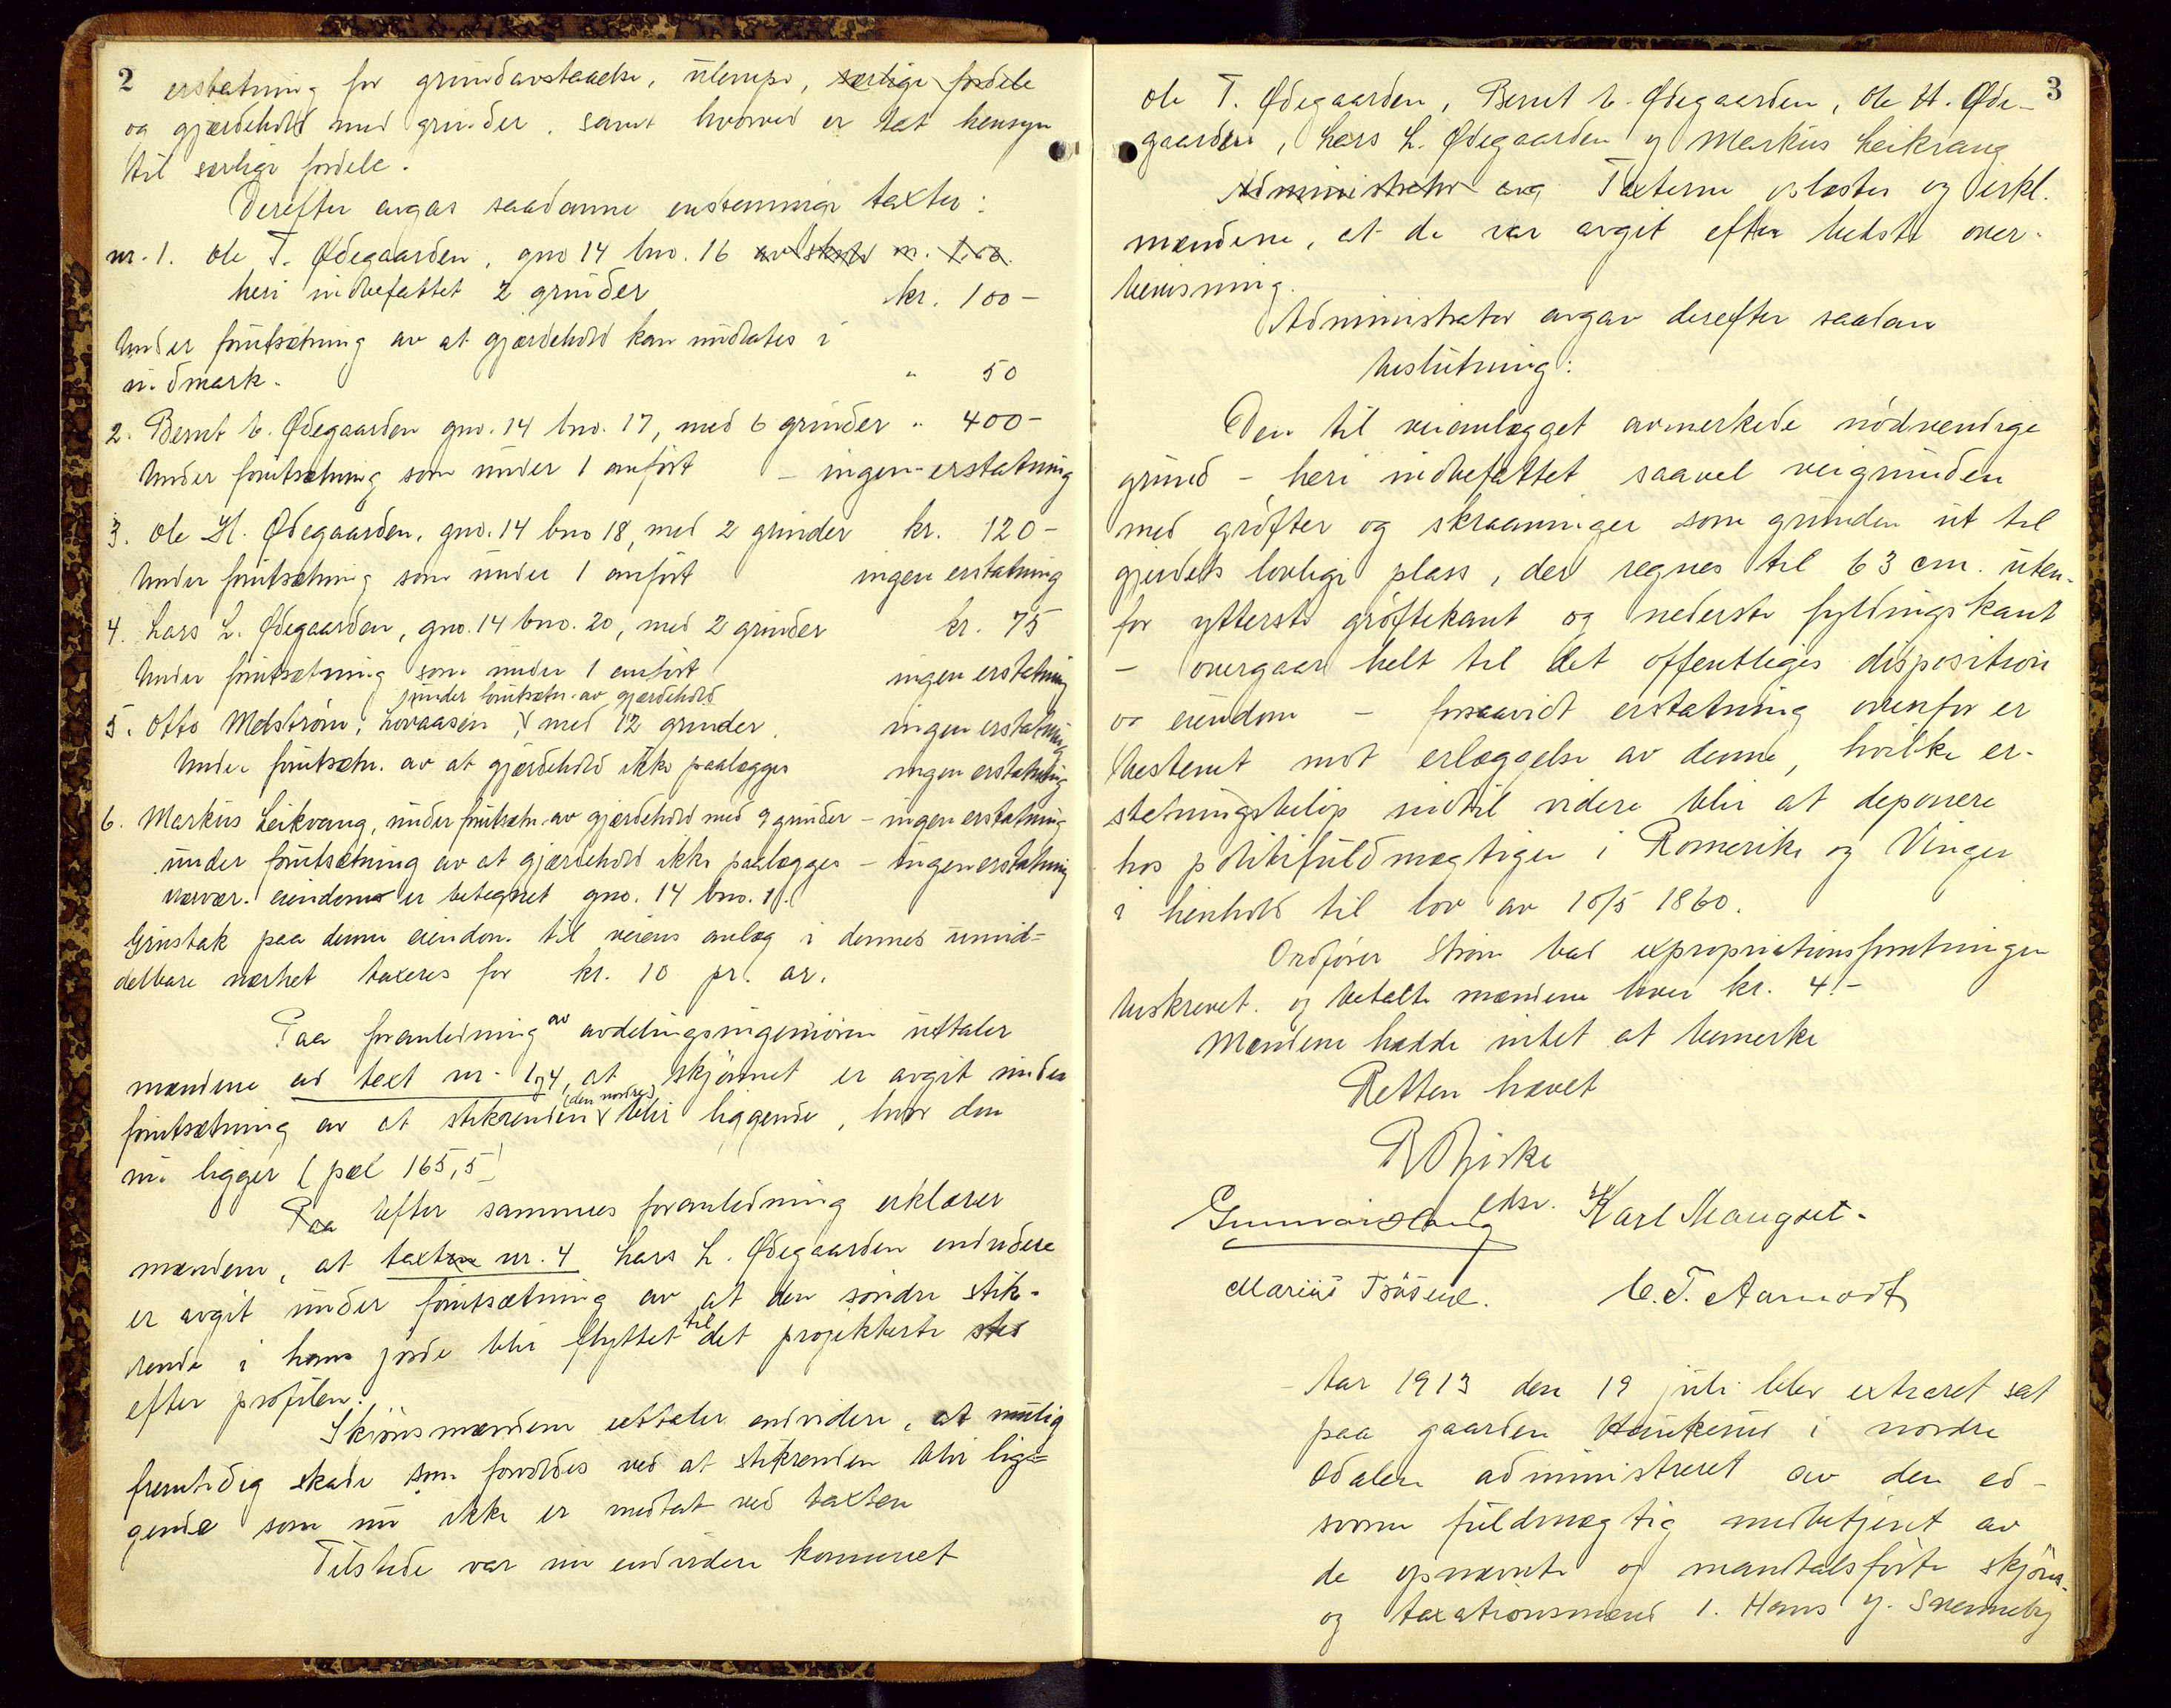 2
erstatning for grundavstaaelse, ulempe, særlige fordele
og gjærdehold med grinder, samt hvorved er tat hensyn
til særlige fordele.
Derefter avgas saadanne enstemmige taxter:
nr. 1. Ole T. Ødegaarden, gno 14 bno. 16
heri indbefattet 2 grinder kr. 100 -
Under forutsætning av at gjærdehold kan undlates i
utmark. " 50
2. Bernt C. Ødegaarden gno. 14 bno. 17, med 6 grinder " 400 -
Under forutsætning som under 1 anført - ingen erstatning
3. Ole H. Ødegaarden, gno. 14 bno 18, med 2 grinder kr. 120 -
Under forutsætning som under 1 anført ingen erstatning
4. Lars L. Ødegaarden, gno. 14 bno. 20, med 2 grinder kr. 75
Under forutsætning som under 1 anført ingen erstatning
under forutsætn. av gjærdehold
5. Otto Melstrøm, Lovaasen med 12 grinder. ingen erstatning
Under forutsætn. av at gjærdehold ikke paalægges ingen erstatning
6. Markus Leikvang, under forutsætn. av gjærdehold med 9 grinder - ingen erstatning
under forutsætning av at gjærdehold ikke paalægges - ingen erstatning
nævn. eiendom er betegnet gno. 14 bno. 1.
Grustak paa denne eiendom til veiens anlæg i dennes umid=
delbare nærhet taxeres for kr. 10 pr. ar.
Paa foranledning av avdelingsingeniøren uttaler
mændene ad taxt nr. 1 og 4, at skjønnet er avgit under
forutsætning av at stikrenden (den nordre) blir liggende, hvor den
nu ligger (pæl 165,5)
Paa Efter sammes foranledning erklærer
mændene, at taxten nr. 4 Lars L. Ødegaarden endvidere
er avgit under forutsætning av at den søndre stik-
rende i hans jorde blir flyttet til det projekterte sted
efter profilen.
Skjønsmændene uttaler endvidere, at mulig
fremtidig skade som forvoldes ved at stikrenden blir lig=
gende som nu ikke er medtat ved taxten
Tilstede var nu endvidere kommet
3
Ole T. Ødegaarden, Bernt C. Ødegaarden, Ole H. Øde-
gaarden, Lars L. Ødegaarden og Markus Leikvang
Administrator avg Taxterne oplæstes og erkl.
mændene, at de var avgit efter bedste over-
bevisning.
Administrator avgav derefter saadan
beslutning:
Den til veianlægget avmerkede nødvendige
grund - heri indbefattet saavel veigrunden
med grøfter og skraaninger som grunden ut til
gjerdets lovlige plass, der regnes til 63 cm. uten-
for ytterste grøftekant og nederste fyldingskant
- overgaar helt til det offentliges disposition
og eiendom - forsaavidt erstatning ovenfor er
bestemt mot erlæggelse av denne, hvilke er-
statningsbeløp indtil videre blir at deponere
hos politifuldmægtigen i Romerike og Vinger
i henhold til lov av 15/5 1860.
Ordfører Strøm bad expropriationsforretningen
beskrevet og betalte mændene hver kr. 4.-
Mændene hadde intet at bemerke
Retten hævet
edsv. Karl Maugset.
Marius C. T. Aarnodt
Aar 1913 den 19 juli blev extraret sat
paa gaarden Haukerud i nordre
Odalen administreret av den ed-
svorne fuldmægtig medbetjent av
de opnævnte og mandtalsførte skjøns-
og taxationsmænd 1. Hans J. Svenneby